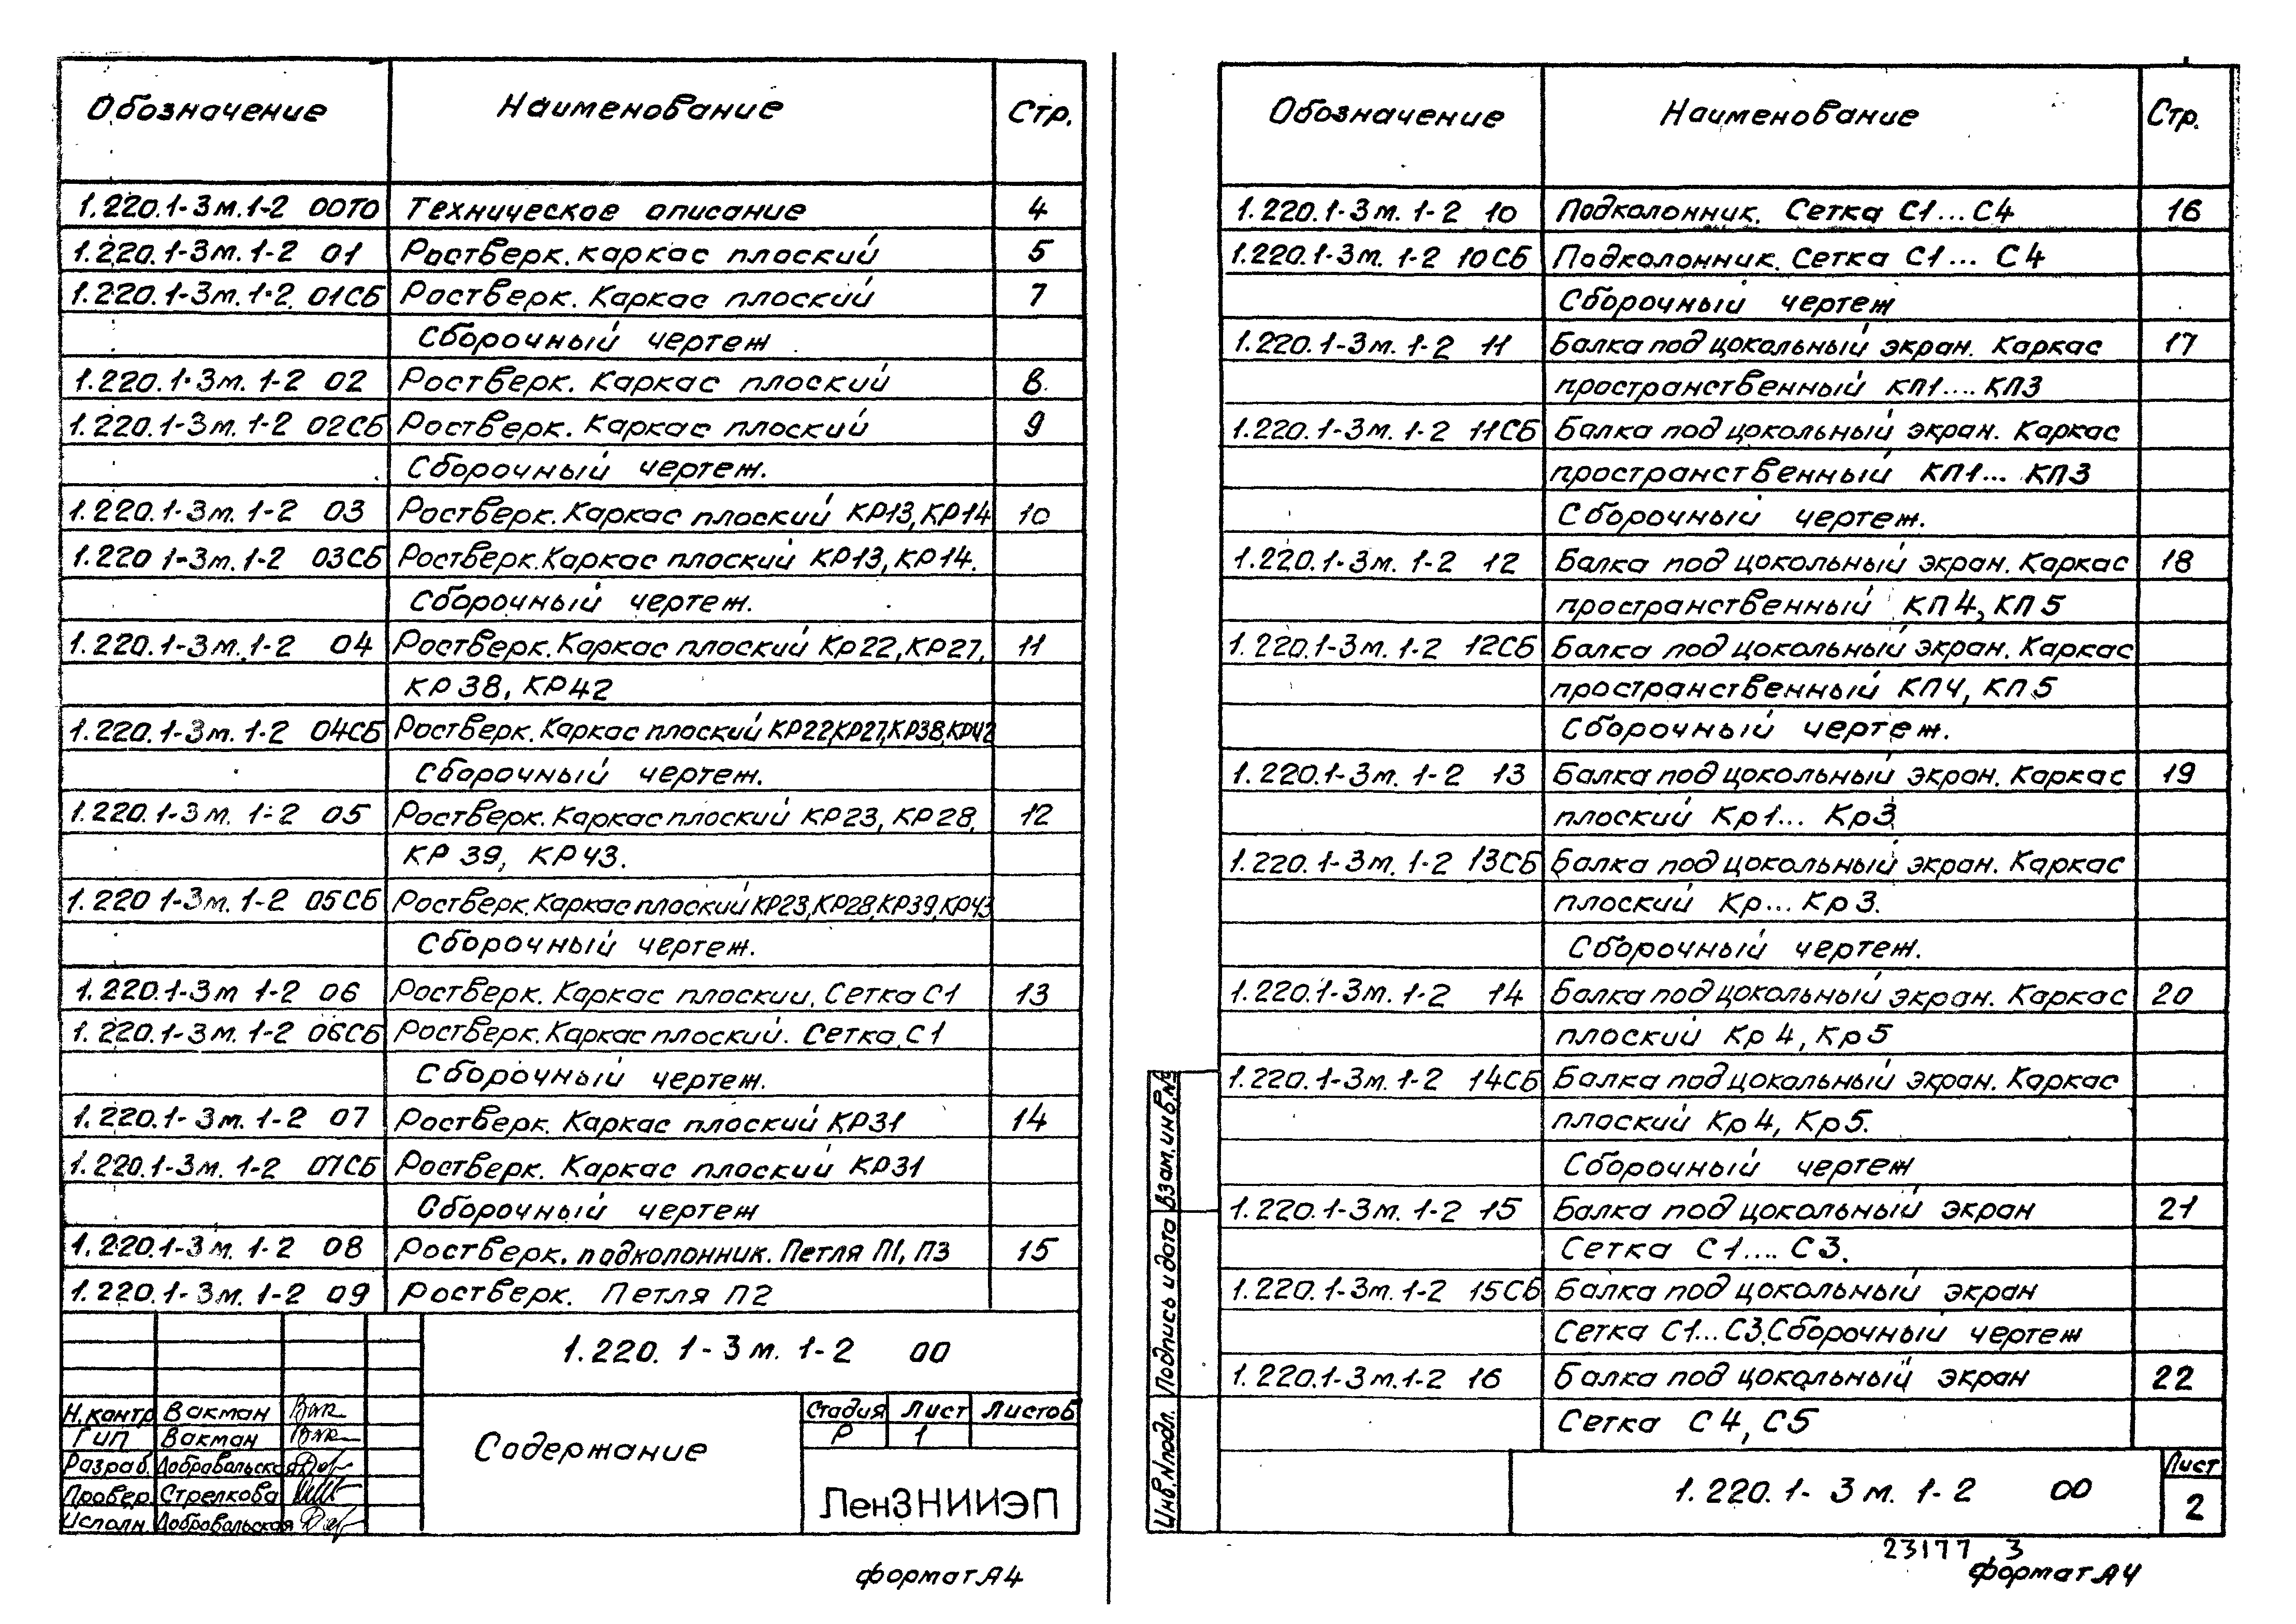 Обозначение Наименование Стр.
1.220.1-3м.1-2 00ТО Техническое описание 4
1.220.1-3м.1-2 01 Ростверк. каркас плоский 5
1.220.1-3м.1-2. 01СБ Ростверк. Каркас плоский 7
Сборочный чертеж
1.220.1-3м. 1-2 02 Ростверк. Каркас плоский 8
1.220.1-3м. 1-2 02СБ Ростверк. Каркас плоский 9
Сборочный чертеж.
1.220.1-3м. 1-2 03 Ростверк. Каркас плоский КР13, КР14 10
1.220 1-3м. 1-2 03СБ Ростверк. Каркас плоский КР13, КР14.
Сборочный чертеж.
1.220.1-3м. 1-2 04 Ростверк. Каркас плоский Кр22, КР27, 11
КР38, КР42
1.220.1-3м. 1-2 04СБ Ростверк. Каркас плоский КР22, КР27, КР38, КР42
Сборочный чертеж.
1.220.1-3м. 1-2 05 Ростверк. Каркас плоский КР23, КР28, 12
КР39, КР43.
1.220 1-3м. 1-2 05СБ Ростверк. Каркас плоский КР23, КР28, КР39, КР43
Сборочный чертеж.
1.220.1-3м 1-2 06 Ростверк. Каркас плоский. Сетка С1 13
1.220.1-3м. 1-2 06СБ Ростверк. Каркас плоский. Сетка С1
Сборочный чертеж.
1.220.1-3м. 1-2 07 Ростверк. Каркас плоский КР31 14
1.220.1-3м. 1-2 07СБ Ростверк. Каркас плоский КР31
Сборочный чертеж
1.220.1-3м. 1-2 08 Ростверк. подколонник. Петля П1, П3 15
1.220.1-3м. 1-2 09 Ростверк. Петля П2
1.220. 1-3м. 1-2 00
Н.контр Вакман
ГИП Вакман
Разраб. Добровольская
Провер. Стрелкова
Исполн. Добровольская
Содержание
Стадия Лист Листов
Р 1
ЛенЗНИИЭП
формат А4
Обозначение Наименование Стр.
1.220.1-3м. 1-2 10 Подколонник. Сетка С1...С4 16
1.220.1-3м. 1-2 10СБ Подколонник. Сетка С1... С4
Сборочный чертеж
1.220.1-3м. 1-2 11 Балка под цокольный экран. Каркас 17
пространственный КП1.... КП3
1.220.1-3м. 1-2 11СБ Балка под цокольный экран. Каркас
пространственный КП1... КП3
Сборочный чертеж.
1.220.1-3м. 1-2 12 Балка под цокольный экран. Каркас 18
пространственный КП4, КП5
1.220.1-3м. 1-2 12СБ Балка под цокольный экран. Каркас
пространственный КП4, КП5
Сборочный чертеж.
1.220.1-3м. 1-2 13 Балка под цокольный экран. Каркас 19
плоский Кр1... Кр3
1.220.1-3м. 1-2 13СБ Балка под цокольный экран. Каркас
плоский Кр... Кр3.
Сборочный чертеж.
1.220.1-3м. 1-2 14 Балка под цокольный экран. Каркас 20
плоский Кр4, Кр5
1.220.1-3м. 1-2 14СБ Балка под цокольный экран. Каркас
плоский Кр4, Кр5.
Сборочный чертеж
1.220.1-3м. 1-2 15 Балка под цокольный экран 21
Сетка С1.... С3.
1.220.1-3м. 1-2 15СБ Балка под цокольный экран
Сетка С1...С3. Сборочный чертеж
1.220.1-3м.1-2 16 Балка под цокольный экран 22
Сетка С4, С5
Инв.№подл. Подпись и дата Взам.инв.№
1.220.1-3м. 1-2 00
Лист
2
23177 3
формат А4